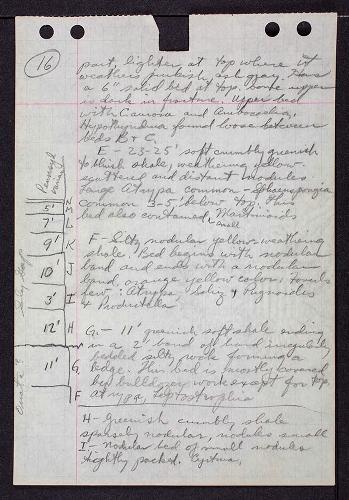 16
part, lighter at top where it
weathers pinkish ash gray. Has
a 6" solid bed at top. Some upper
is dark in fracture. Upper bed
with Camarotoechia and Ambocoelia.
Hypothyridina found loose between
beds B & C.
E - 23-25' soft crumbly greenish
to bluish shale, weathering yellow.
scattered and distant nodules
Large Atrypa common - Spongia
common 3-5' below top. This
bed also contained
small
F - Silty nodular yellow weathering
shale. Bed begins with nodular
band and ends with a nodular
band orange yellow color, fossils
few. Atrypa, & Pugnoides
& Productella
G. - 11' greenish soft shale ending
in a 2' band of hard irregularly
bedded silty rock forming a
ledge. This bed is mostly covered
by bulldozer work except for top.
Atrypa, Leptostrophia
H - Greenish crumbly shale
sparsely nodular, nodules small
I - Nodular bed of small nodules
tightly packed. Cyrtina,
5' M
7' L
9' K
10' J
3' I
12' H
11' G
F